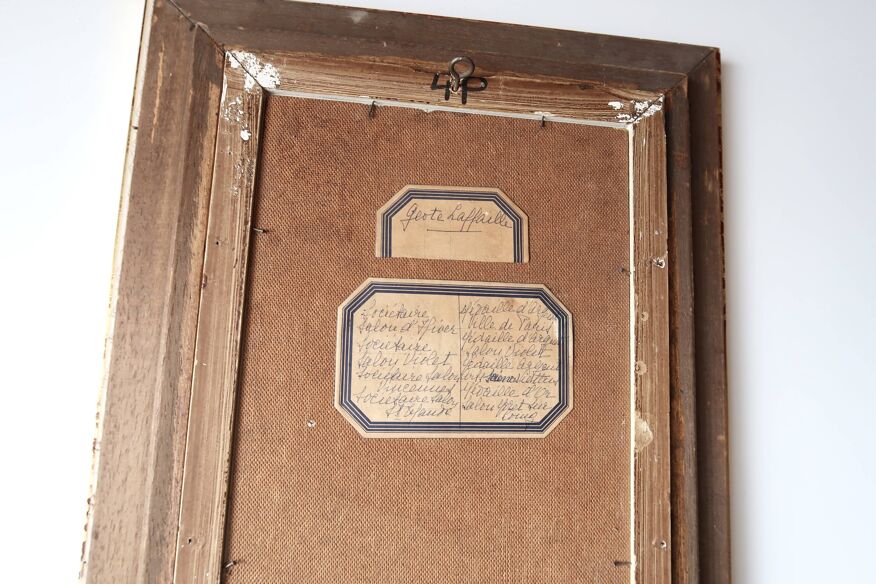 4P
Geote Laffaille
Sociétaire
Salon d'Hiver
Sociétaire
Salon Violet
Sociétaire Salon
Vincennes
Sociétaire Salon
St Mandé
Médaille d'argent
Ville de Paris
Médaille d'argent
Salon Violet
Médaille argent
Médaille d'Or
Salon